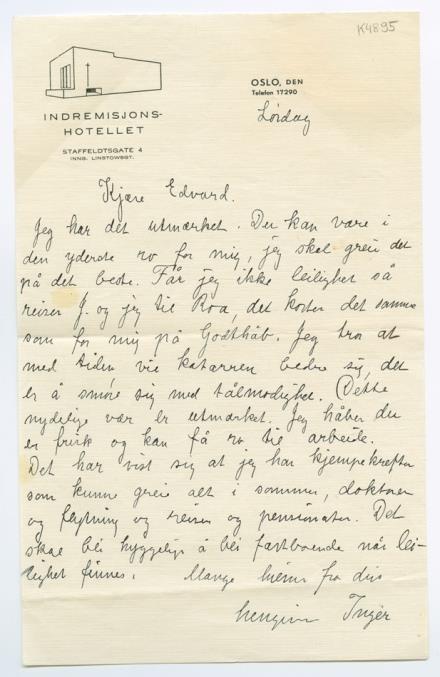 K4895
OSLO, DEN
Telefon 17290
Lördag
INDREMISJONS-
HOTELLET
STAFFELDTSGATE 4
INNG. LINSTOWSGT.
Kjære Edvard.
Jeg har det utmærket. Du kan være i
den yderste ro for mig, jeg skal greie det
på det beste. Får jeg ikke leilighet så
reiser J. og jeg til Roa, det koster det samme
som for mig på Godthåb. Jeg tror at
med tiden vil katarren bedre sig, det
er å smøre sig med tålmodighet. Dette
nydelige vær er utmærket. Jeg håber du
er frisk og kan få ro til arbeide.
Det har vist sig at jeg har kjempekrefter
som kunne greie alt i sommer, doktorer
og flytning og reiser og pensionater. Det
skal bli hyggelig å bli fastboende når lei-
lighet finnes. Mange hilsner fra din
hengivne Inger